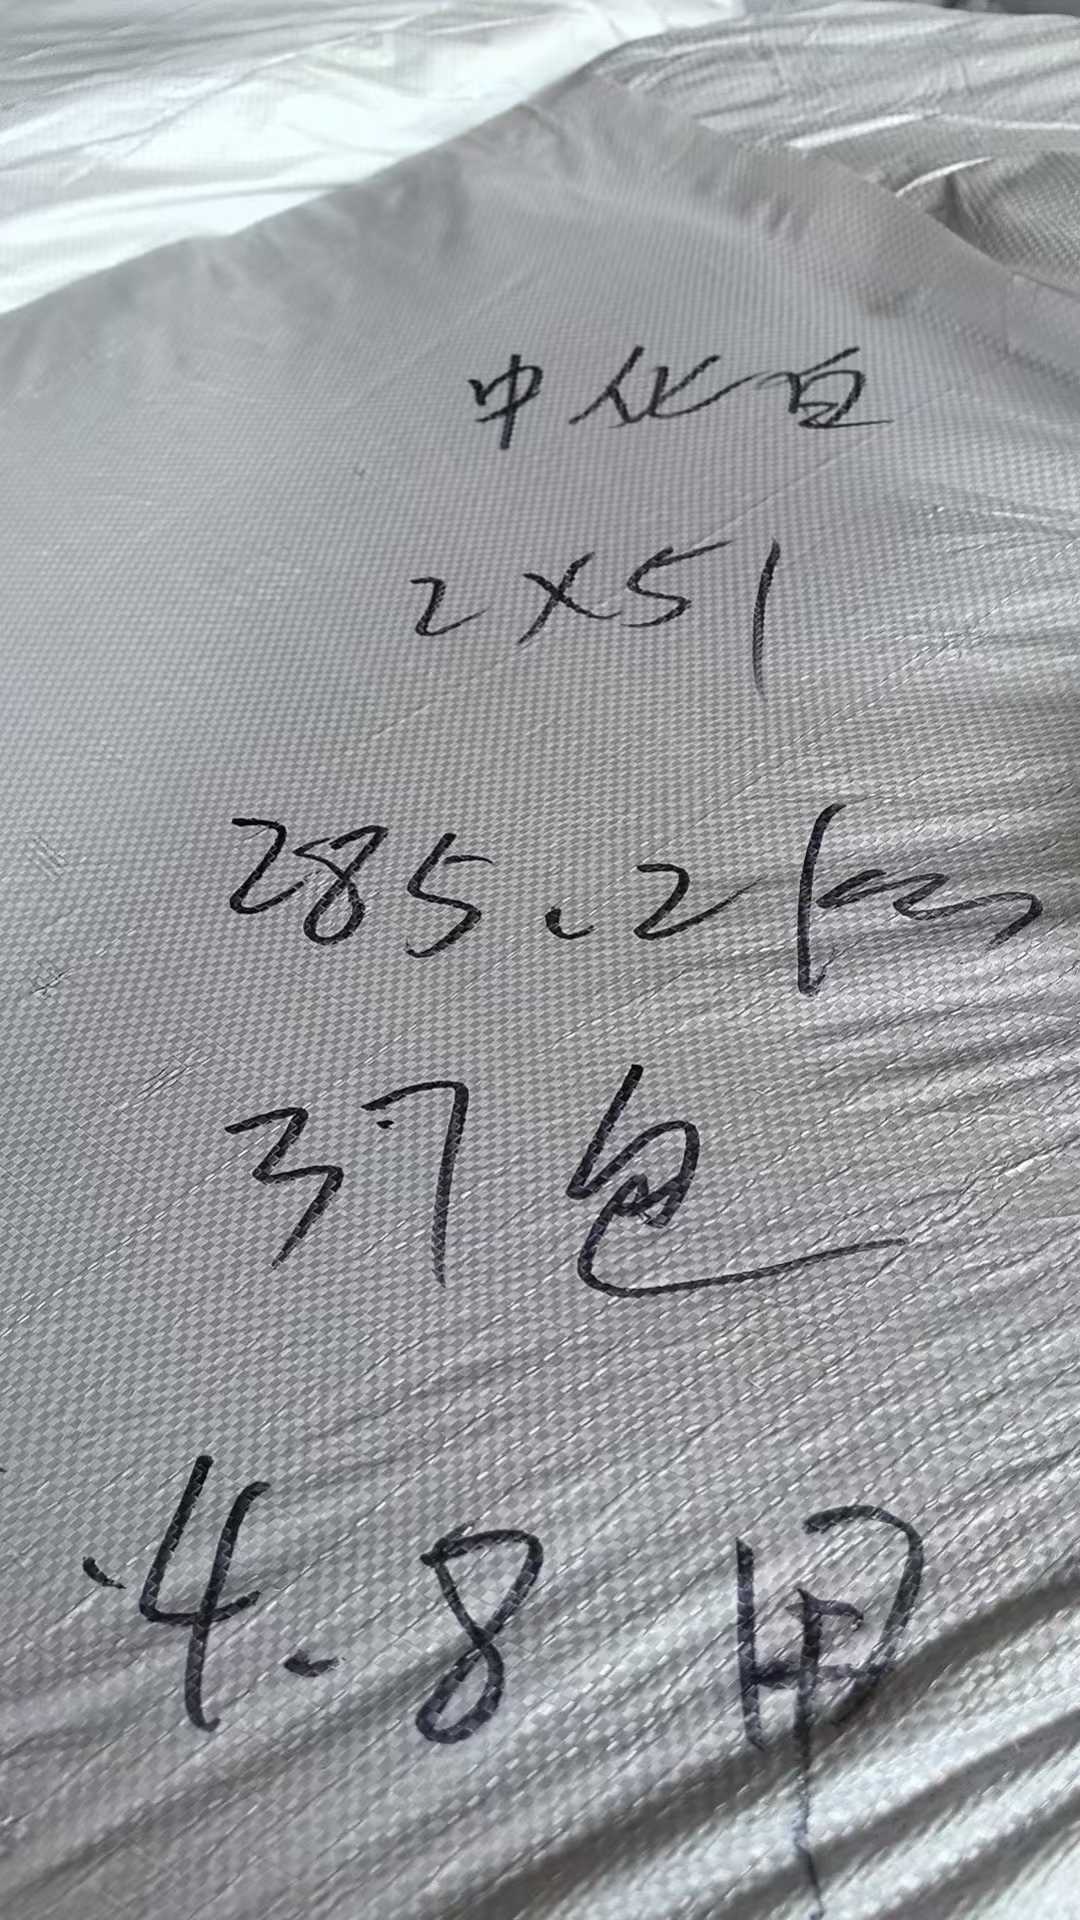 中化白
2X51
285.2kg
37包
4.8 甲